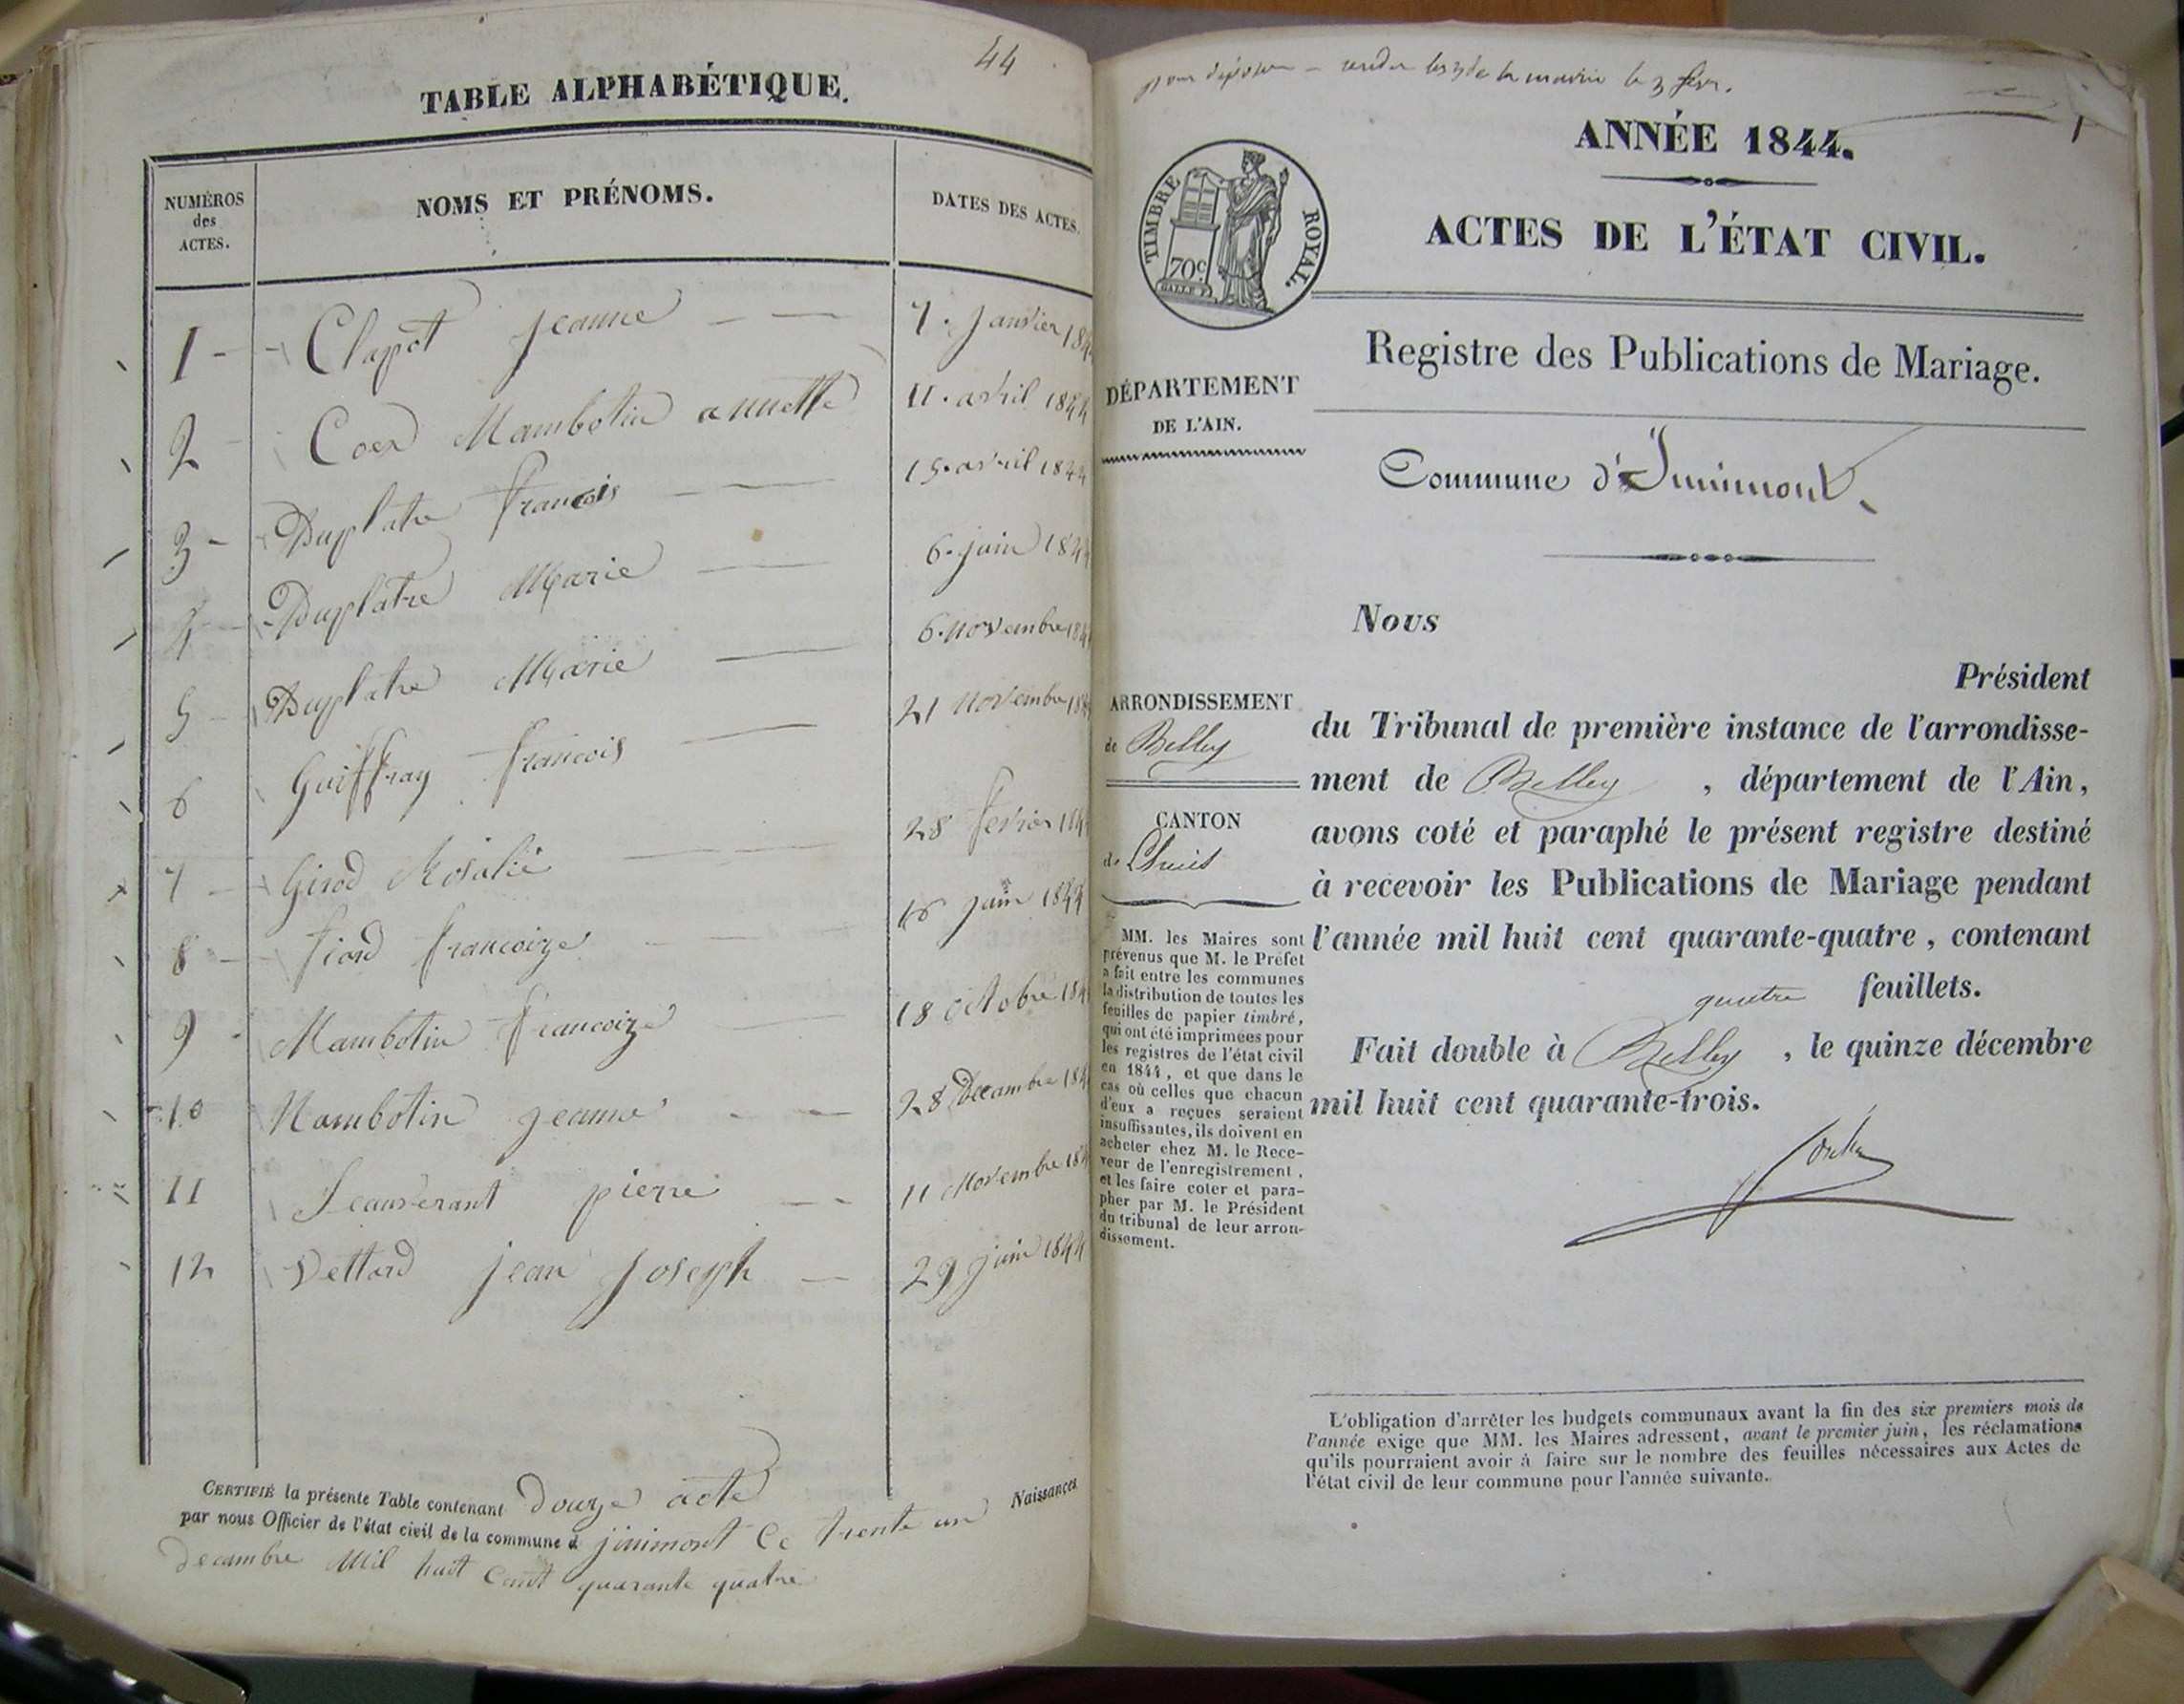 44
TABLE ALPHABÉTIQUE.
NUMÉROS des ACTES.
NOMS ET PRÉNOMS.
DATES DES ACTES.
1 - Clapot jeanne 7. janvier 184
2 Coer Mambotin annette 11. avril 1844
3 - Duplatre francois 15. avril 1844
4 Duplatre Marie 6. juin 184
5 Duplatre Marie 6. novembre 184
6 Guiffray francois 21 novembre 184
7 - Girod Rosalie 28 fevrier 184
8 - francoize 16 juin 1844
9 Mambotin francoize 18 octobre 184
10 Mambotin jeanne 28 Decambre 184
11 pierre 11 Novembre 184
12 Vettard jean joseph 29 juin 1844
CERTIFIÉ la présente Table contenant douze acte Naissances
par nous Officier de l'état civil de la commune d jnimont Ce trente un
decambre Mil huit Cent quarante quatre
pour - la mairie le 3
1
ANNÉE 1844.
TIMBRE ROYAL.
70c
ACTES DE L'ÉTAT CIVIL.
Registre des Publications de Mariage.
DÉPARTEMENT
DE L'AIN.
Commune d'Innimont.
Nous
Président
du Tribunal de première instance de l'arrondisse-
ment de Belley, département de l'Ain,
avons coté et paraphé le présent registre destiné
à recevoir les Publications de Mariage pendant
l'année mil huit cent quarante-quatre, contenant
quatre feuillets.
Fait double à Belley, le quinze décembre
mil huit cent quarante-trois.
ARRONDISSEMENT
de Belley
CANTON
de Lhuis
MM. les Maires sont
prévenus que M. le Préfet
a fait entre les communes
la distribution de toutes les
feuilles de papier timbré,
qui ont été imprimées pour
les registres de l'état civil
en 1844, et que dans le
cas où celles que chacun
d'eux a reçues seraient
insuffisantes, ils doivent en
acheter chez M. le Rece-
veur de l'enregistrement,
et les faire coter et para-
pher par M. le Président
du tribunal de leur arron-
dissement.
L'obligation d'arrêter les budgets communaux avant la fin des six premiers mois de
l'année exige que MM. les Maires adressent, avant le premier juin, les réclamations
qu'ils pourraient avoir à faire sur le nombre des feuilles nécessaires aux Actes de
l'état civil de leur commune pour l'année suivante.